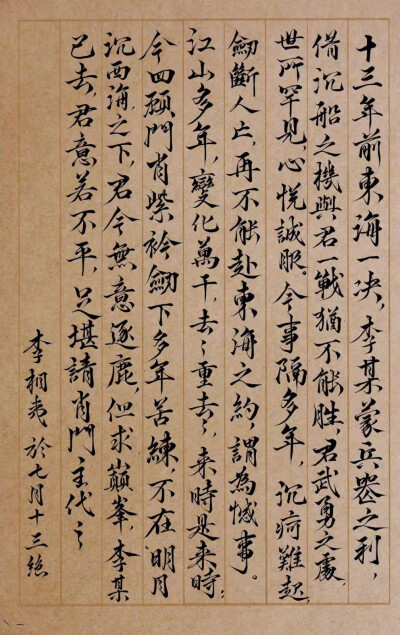 十三年前東海一决，李某蒙兵器之利，
借沉船之機與君一戰猶不能勝，君武勇之處，
世所罕見，心悅誠服。今事隔多年，沉疴難起，
劒斷人亡，再不能赴東海之約，謂為憾事。
江山多年，變化萬千，去〻重去〻，来時是来時；
今四顧門肖紫衿劒下多年苦練，不在明月
沉西海之下，君今無意逐鹿，但求巔峯，李某
已去，君意若不平，足堪請肖門主代之
李相夷於七月十三絕